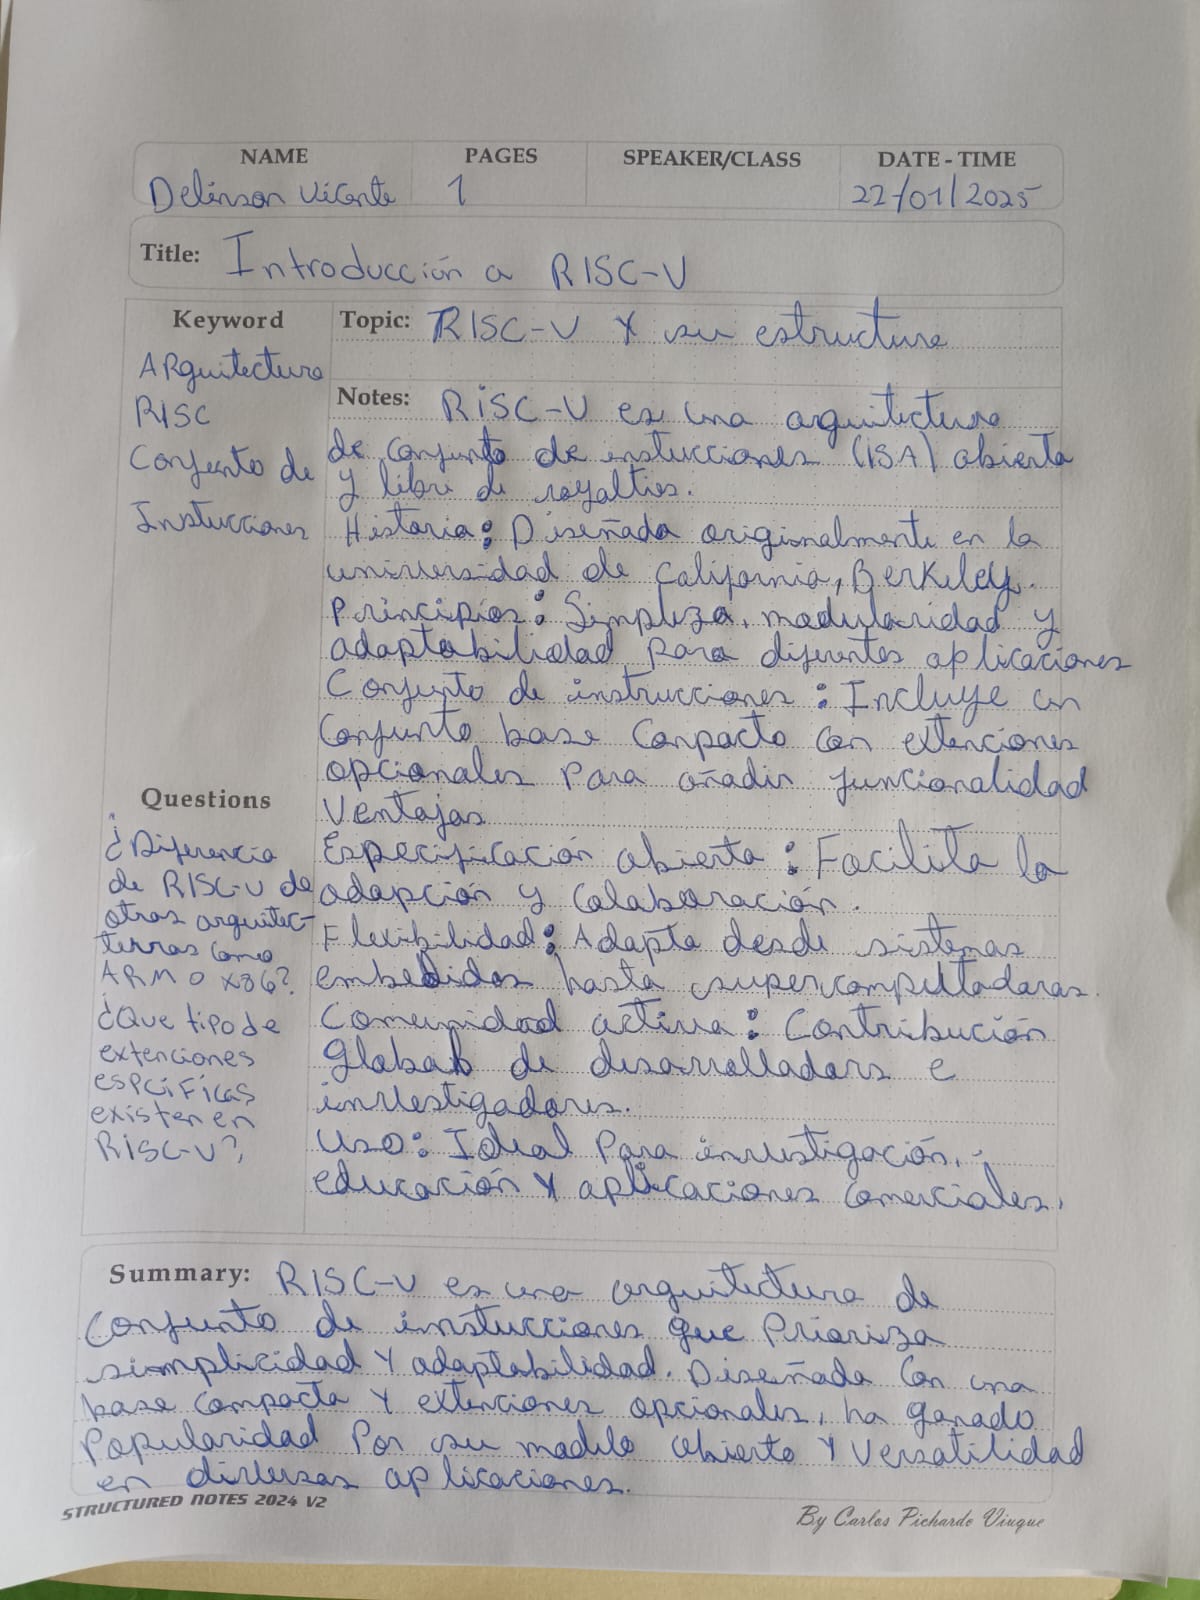 NAME PAGES SPEAKER/CLASS DATE - TIME
Delinson Vicente 1 22/01/2025
Title: Introducción a RISC-V
Keyword
ARquitectura
RISC
Conjunto de
Instucciones
Topic: RISC-V Y su estructura
Notes: RISC-V es una arquitectura
de conjunto de instucciones (ISA) abierta
y libre de royalties.
Historia: Diseñada originalmente en la
universidad de California, Berkeley.
Principios: Simpleza, modularidad y
adaptabilidad para diferentes aplicaciones
Conjunto de instrucciones: Incluye un
conjunto base conpacto con extenciones
opcionales para añadir funcionalidad
Ventajas
Especificación abierta: Facilita la
adapción y colaboración.
Flexibilidad: Adapta desde sistemas
embedidos hasta supercomputadoras.
Comunidad activa: Contribución
Global de desarrolladores e
investigadores.
Uso: Ideal para investigación,
educación Y aplicaciones comerciales.
Questions
¿Diferencia
de RISC-V de
otras arquitec-
terras como
ARM O X86?
¿Que tipo de
extenciones
espcificas
existen en
RISC-V?
Summary: RISC-V es una arquitectura de
conjunto de instucciones que Prioriza
simplicidad Y adaptabilidad. Diseñada con una
base compacta Y extenciones opcionales, ha ganado
Popularidad Por su modelo abierto Y Versatilidad
en diversas aplicaciones.
STRUCTURED NOTES 2024 V2
By Carlos Pichardo Viuque